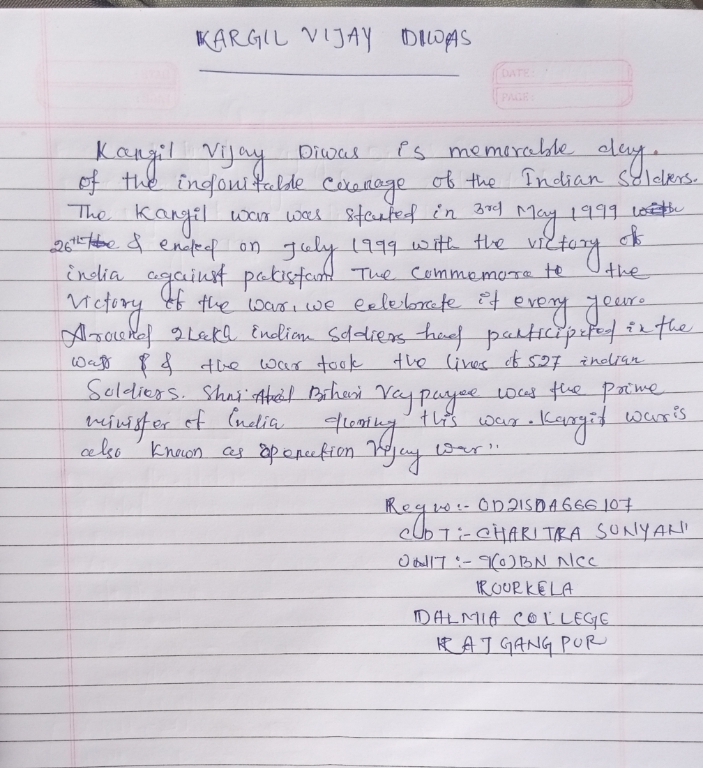 KARGIL VIJAY DIWAS
DATE:
PAGE:
Kargil Vijay Diwas is memorable day.
of the indomitable courage of the Indian Soldiers.
The Kargil war was started in 3rd May 1999
26th & ended on July 1999 with the victory of
india against pakistan The Commemora te the
Victory of the war, we celebrate it every year.
Around 2 Lakh Indian Soldiers had participated in the
war & the war took the lives of 527 indian
Soldiers. Shri Bihari Vajpayee was the prime
minister of India during this war. Kargil war is
also Known as operation Vijay war"
Reg no:- OD21SDA666107
CDT:- CHARITRA SUNYANI
UNIT:- 9(O)BN NCC
ROURKELA
DALMIA COLLEGE
RAJGANGPUR